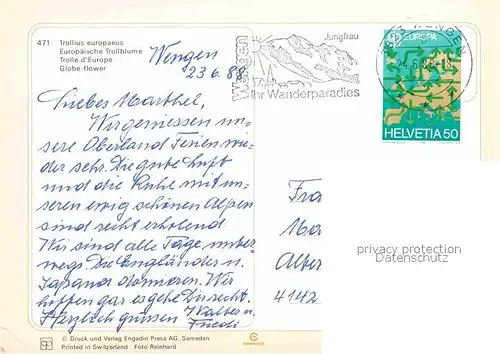 471 Trollius europaeus
Europäische Trollblume
Trolle d'Europe
Globe-flower
Wengen
23.6.88
Wengen
Jungfrau
Ihr Wanderparadies
EUROPA
HELVETIA 50
Liebes Marthel,
Wir geniessen un
sere Oberland Ferien wie-
der sehr. Die gute Luft
und die Ruhe mit un-
seren ewig schönen Alpen
sind recht erholend.
Wir sind alle Tage unter
wegs. Die Engländer u.
Japaner dominieren. Wir
hoffen gar es gehe Dir recht.
Herzlich grüssen Walter u.
Friedi
Fra
Mar
Alber
4142
privacy protection
Datenschutz
© Druck und Verlag Engadin Press AG, Samedan
Printed in Switzerland Foto Reinhard